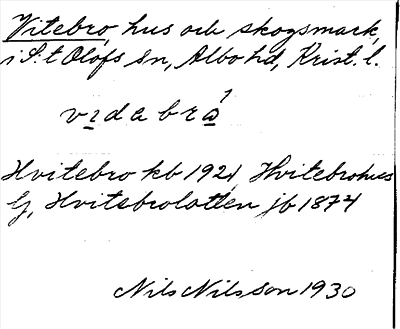 Vitebro, hus och skogsmark,
i S:t Olofs sn, Albo hd, Krist. l.
vɪdabrɷ̱¹
Hvitebro kb 1921, Hvitebrohus
ly, Hvitebrolotten jb 1874
Nils Nilsson 1930